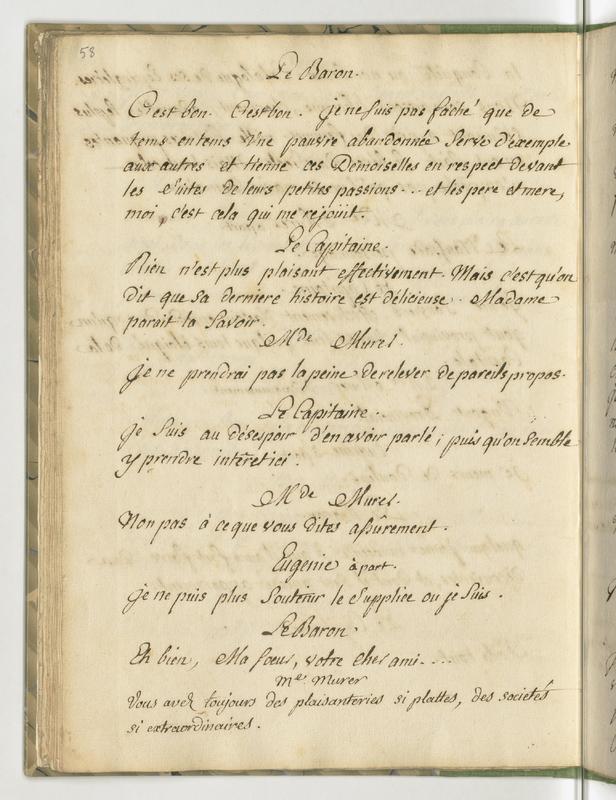 58
Le Baron.
C'est bon. C'est bon. je ne suis pas faché que de
tems en tems une pauvre abandonnée serve d'exemple
aux autres et tienne ces Demoiselles en respect devant
les suites de leurs petites passions... et les pere et mere,
moi, c'est cela qui me rejouit.
Le Capitaine.
Rien n'est plus plaisant effectivement. Mais c'est qu'on
dit que sa derniere histoire est délicieuse. Madame
parait la savoir.
Mde Murer.
je ne prendrai pas la peine de relever de pareils propos.
Le Capitaine.
je suis au désespoir d'en avoir parlé; puis qu'on semble
y prendre intéret ici.
Mde Murer.
Non pas à ce que vous dites assûrement.
Eugenie à part.
je ne puis plus soutenir le supplice ou je suis.
Le Baron.
Eh bien, Ma soeur, votre cher ami....
Me Murer
Vous avez toujours des plaisanteries si plattes, des societés
si extraordinaires.